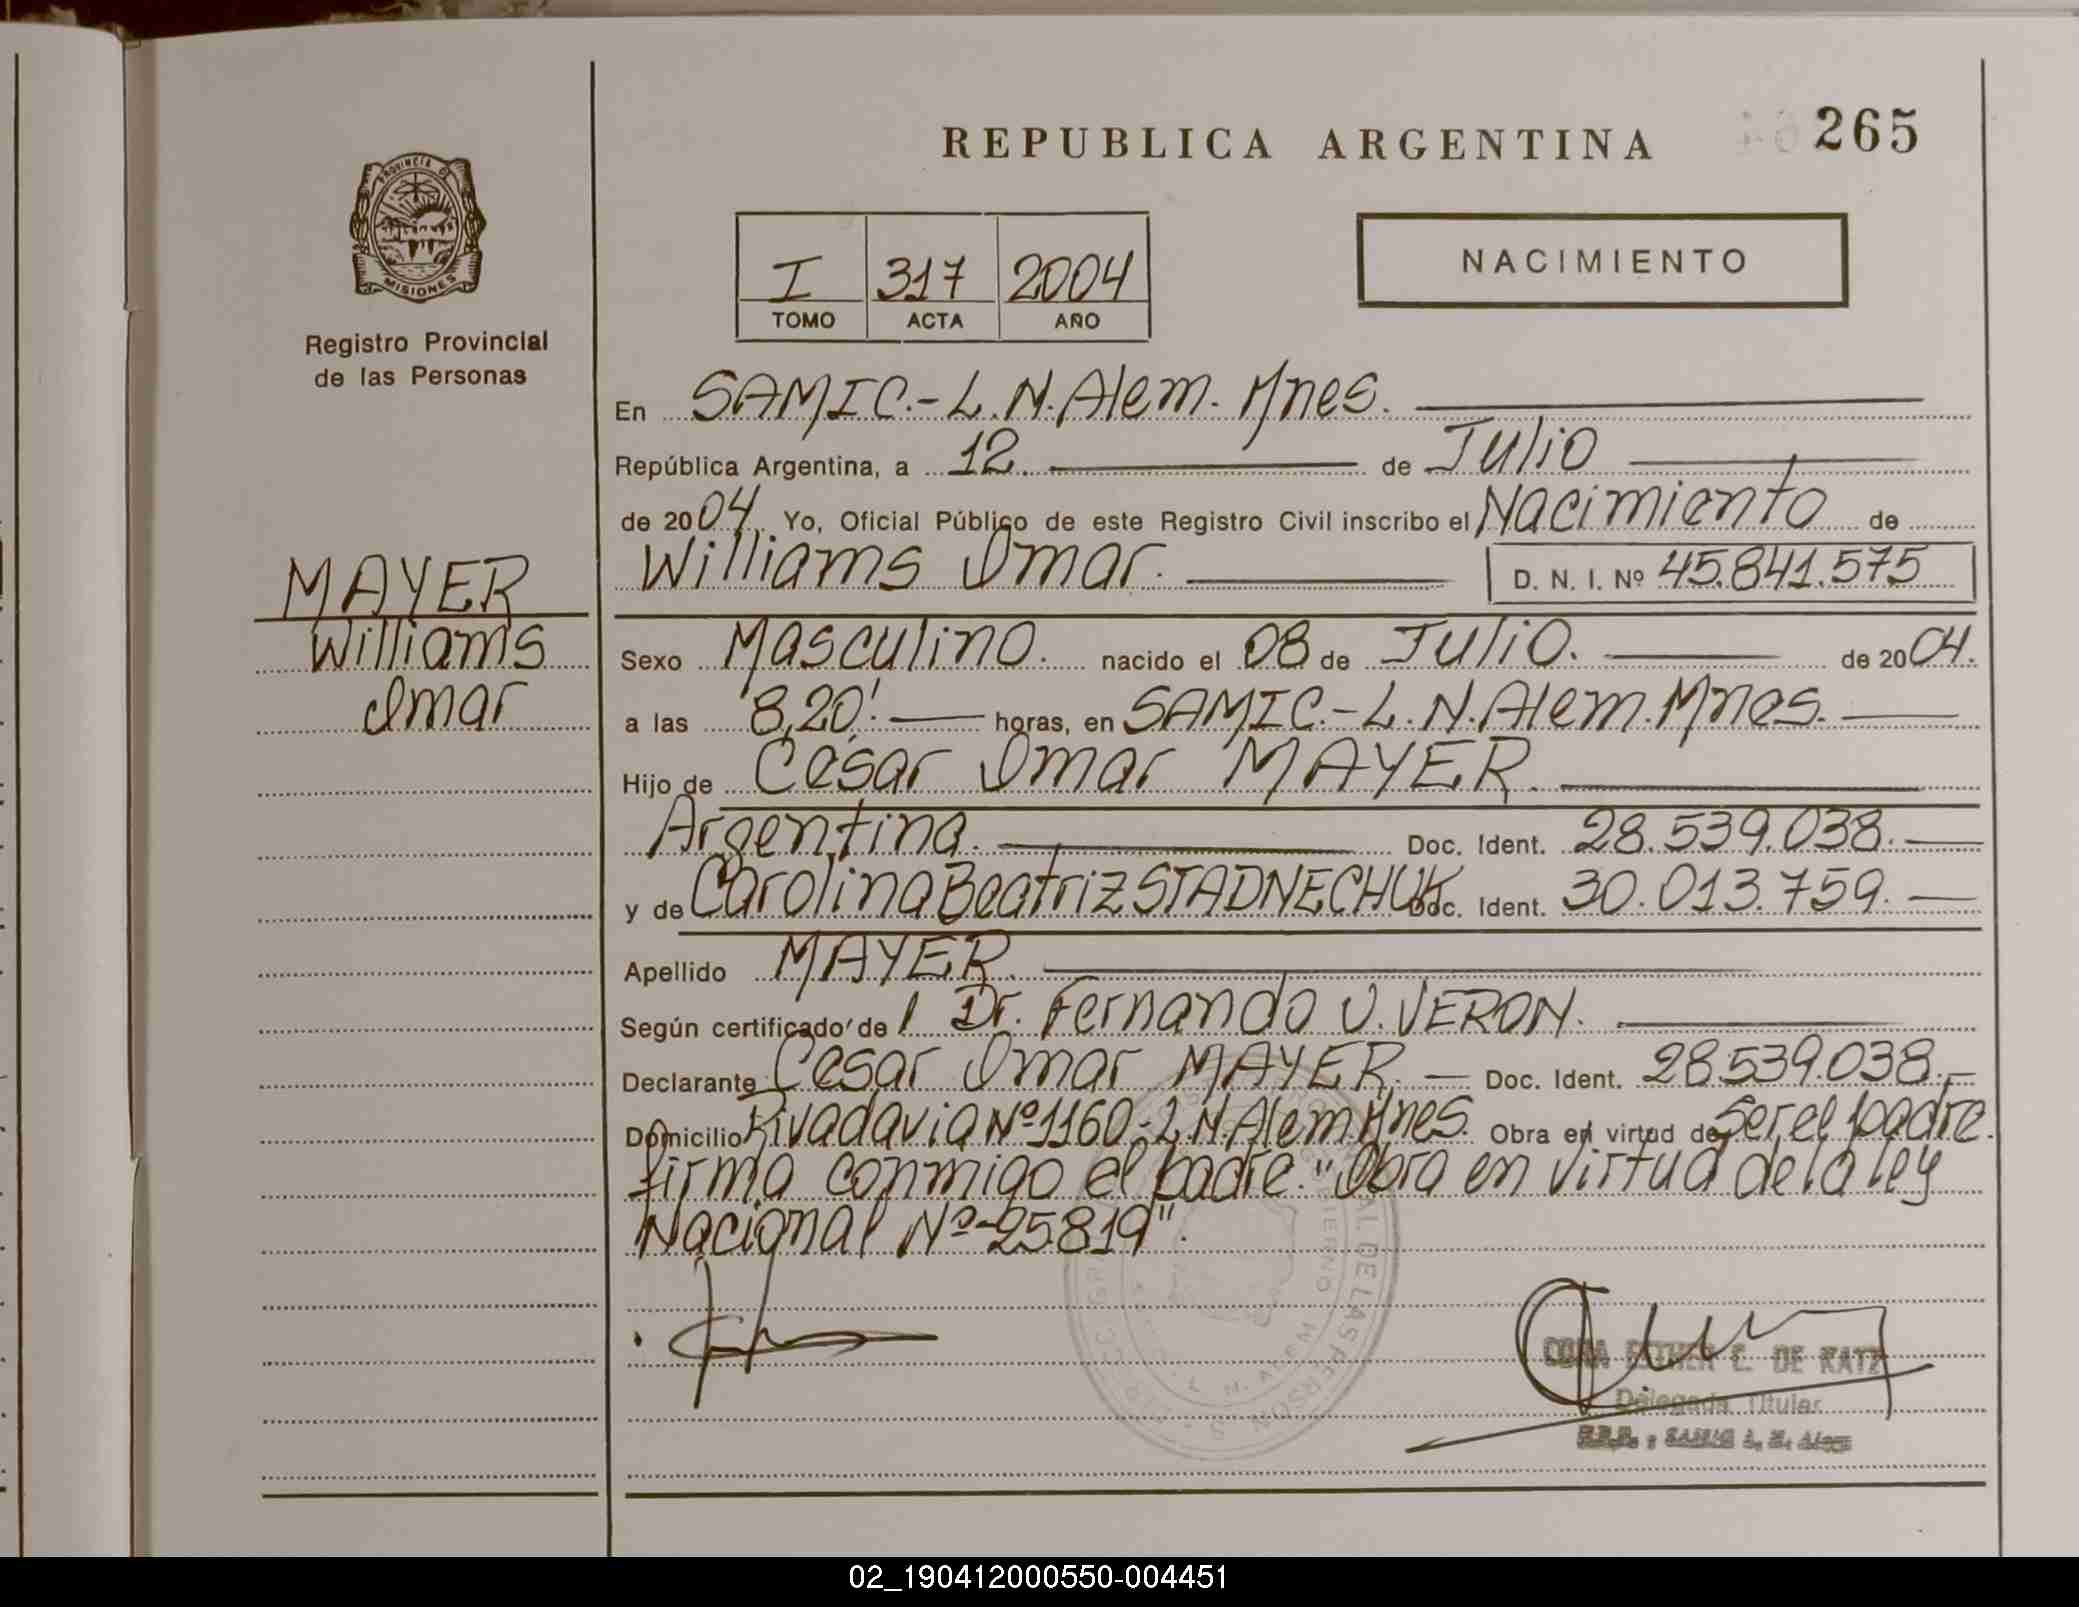 REPUBLICA ARGENTINA
265
PROVINCIA DE
MISIONES
Registro Provincial
de las Personas
I 317 2004
TOMO ACTA AÑO
NACIMIENTO
En SAMIC.-L.N.Alem. Mnes.
República Argentina, a 12 de Julio
de 2004 Yo, Oficial Público de este Registro Civil inscribo el Nacimiento de
Williams Omar. D. N. I. Nº 45.841.575
MAYER
Williams
Omar
Sexo Masculino. nacido el 08 de Julio. de 2004.
a las 8,20'. horas, en SAMIC.-L.N.Alem.Mnes.
Hijo de César Omar MAYER.
Argentina. Doc. Ident. 28.539.038.
y de Carolina Beatriz STADNECHUK Doc. Ident. 30.013.759.
Apellido MAYER.
Según certificado de l Dr. Fernando V. VERON.
Declarante César Omar MAYER. Doc. Ident. 28539.038.
Domicilio Rivadavia Nº 1160.-L.N.Alem Mnes. Obra en virtud de Ser el padre.
firma conmigo el padre. "Obra en virtud de la ley
Nacional Nº-25819".
CORA ESTHER C. DE KATZ
Delegada Titular
R.P.P. - SAMIC L. N. Alem
02_190412000550-004451